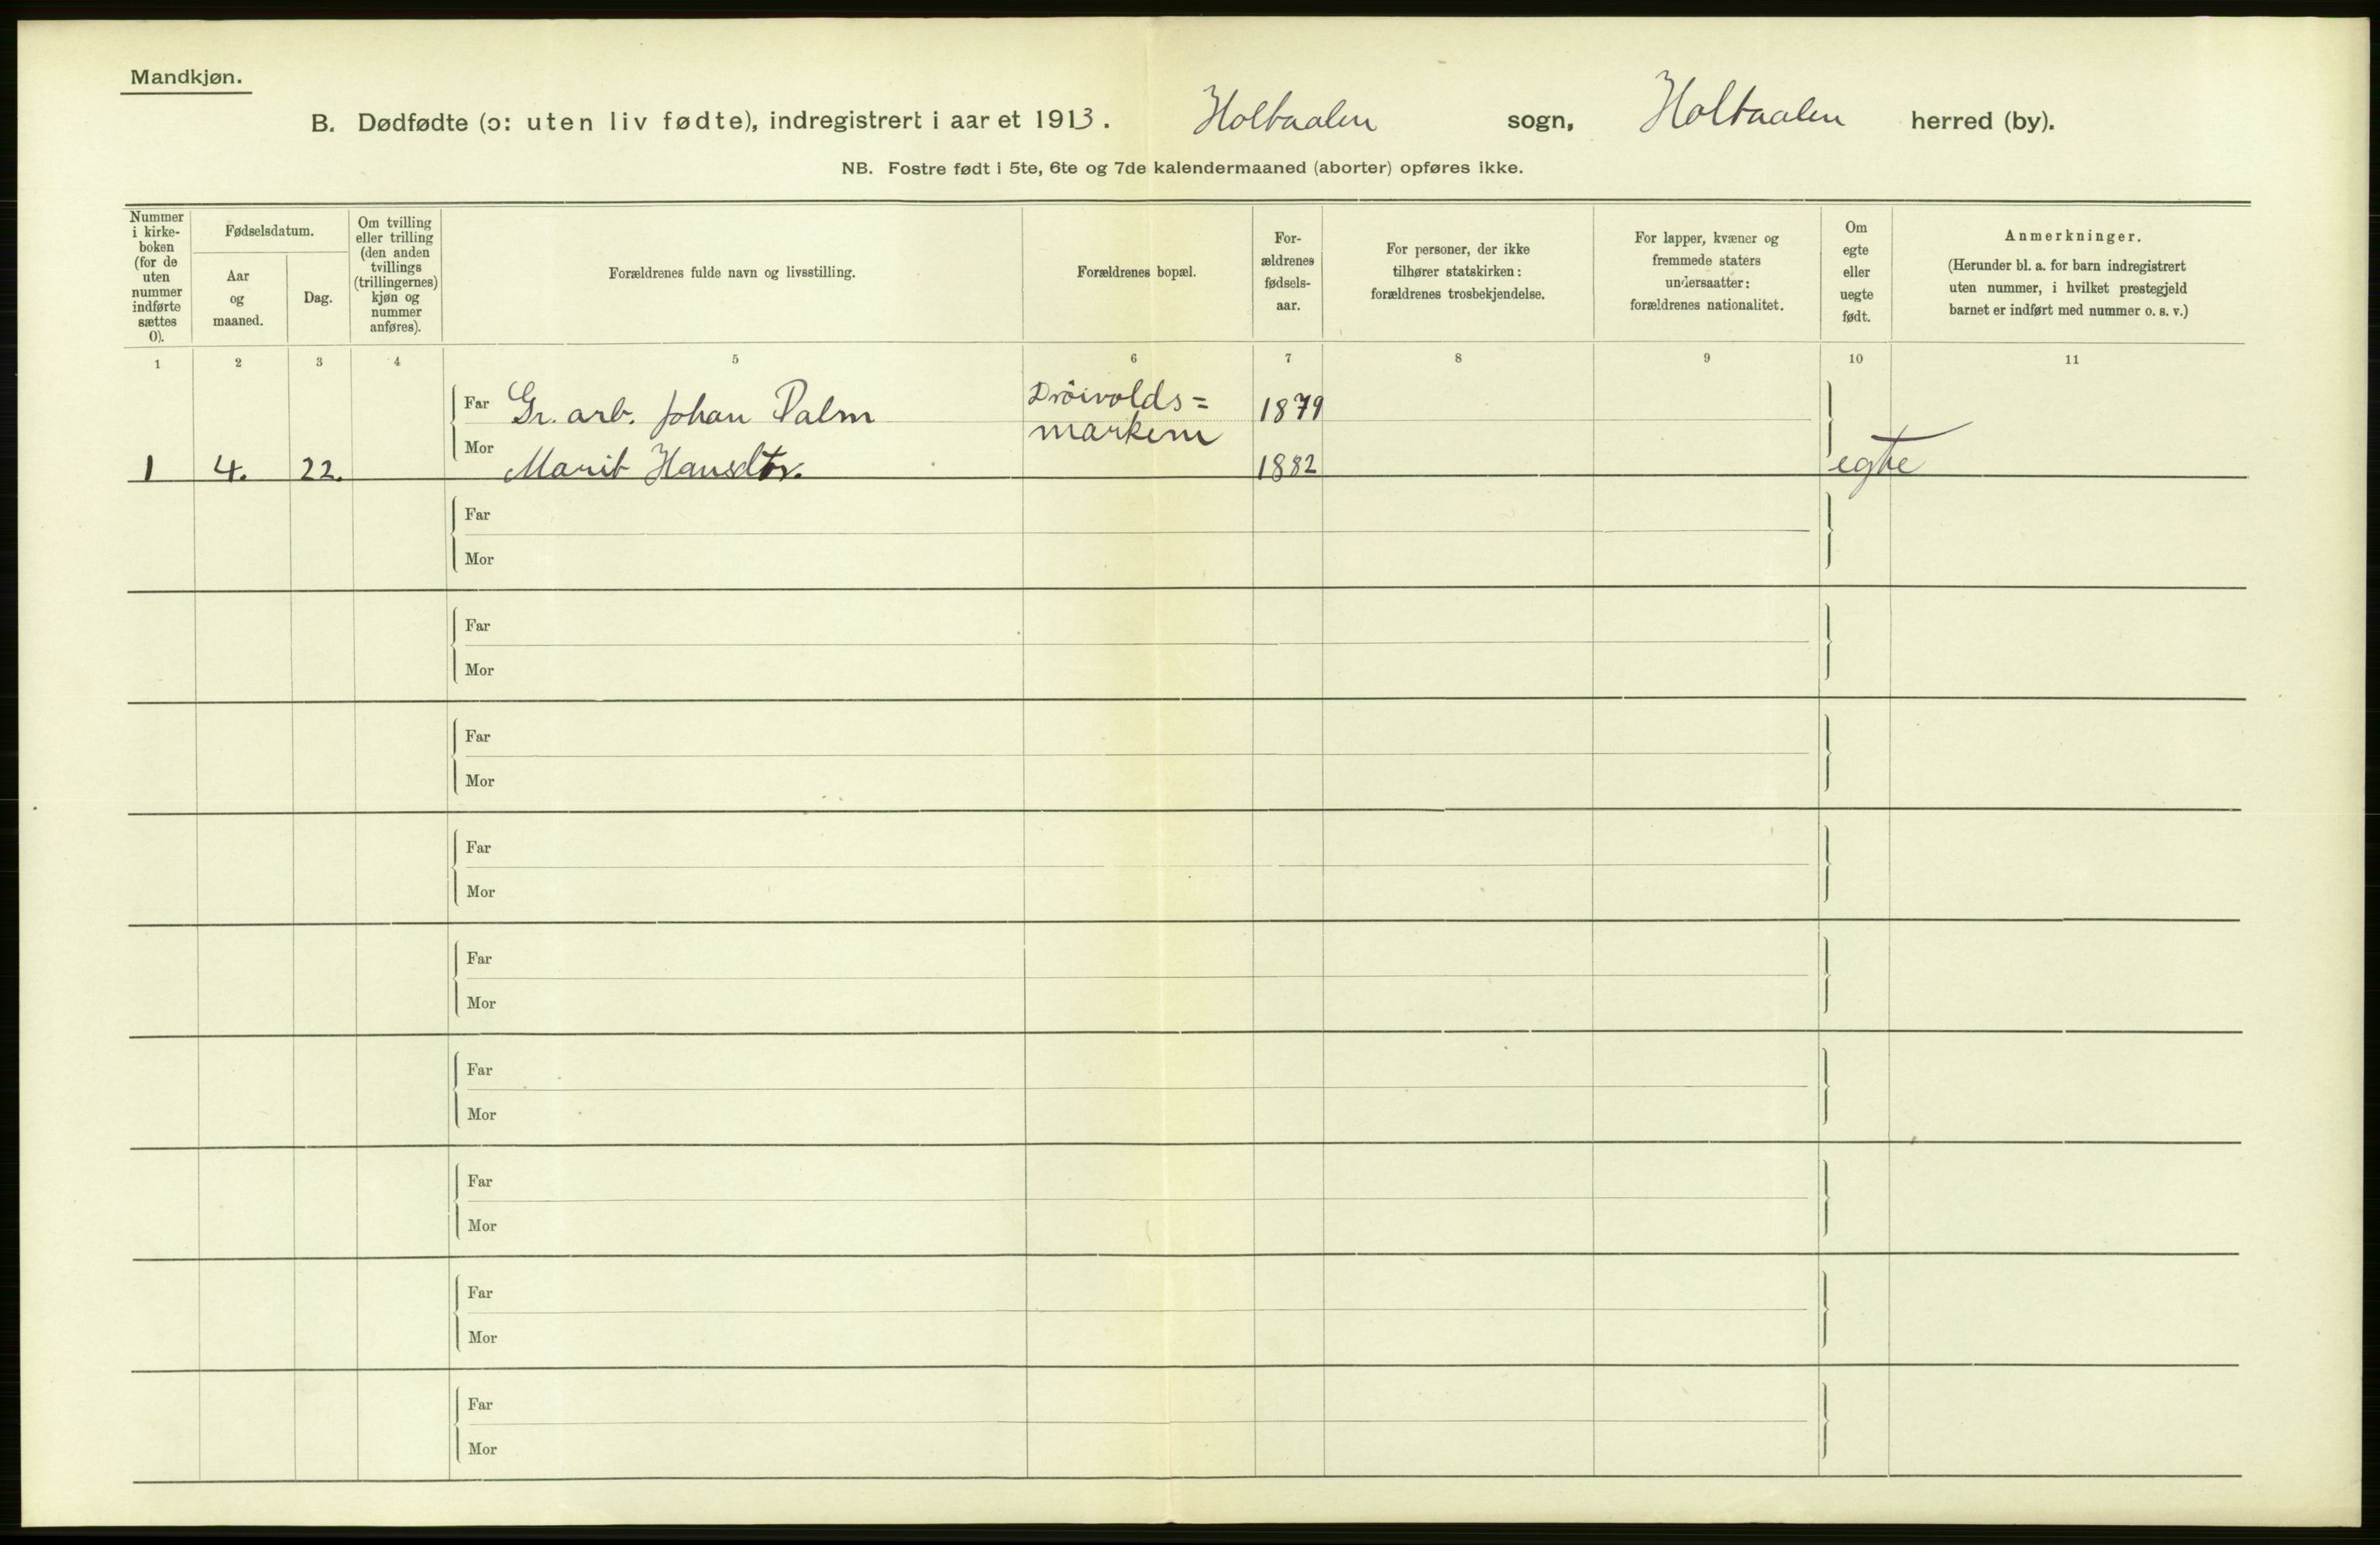 Mandkjøn.
B. Dødfødte (ɔ: uten liv fødte), indregistrert i aaret 1913. Holtaalen sogn, Holtaalen herred (by).
NB. Fostre født i 5te, 6te og 7de kalendermaaned (aborter) opføres ikke.
Nummer
i kirke-
boken
(for de
uten
nummer
indførte
sættes
0).
Fødselsdatum.
Aar
og
maaned.
Dag.
Om tvilling
eller trilling
(den anden
tvillings
(trillingernes)
kjøn og
nummer
anføres).
Forældrenes fulde navn og livsstilling.
Forældrenes bopæl.
For-
ældrenes
fødsels-
aar.
For personer, der ikke
tilhører statskirken:
forældrenes trosbekjendelse.
For lapper, kvæner og
fremmede staters
undersaatter:
forældrenes nationalitet.
Om
egte
eller
uegte
født.
Anmerkninger.
(Herunder bl. a. for barn indregistrert
uten nummer, i hvilket prestegjeld
barnet er indført med nummer o. s. v.)
1 2 3 4 5 6 7 8 9 10 11
Far Gr. arb. Johan Palm Dröivolds= 1879
markem
1 4. 22. Mor Marit Hansdtr. 1882 egte
Far
Mor
Far
Mor
Far
Mor
Far
Mor
Far
Mor
Far
Mor
Far
Mor
Far
Mor
Far
Mor